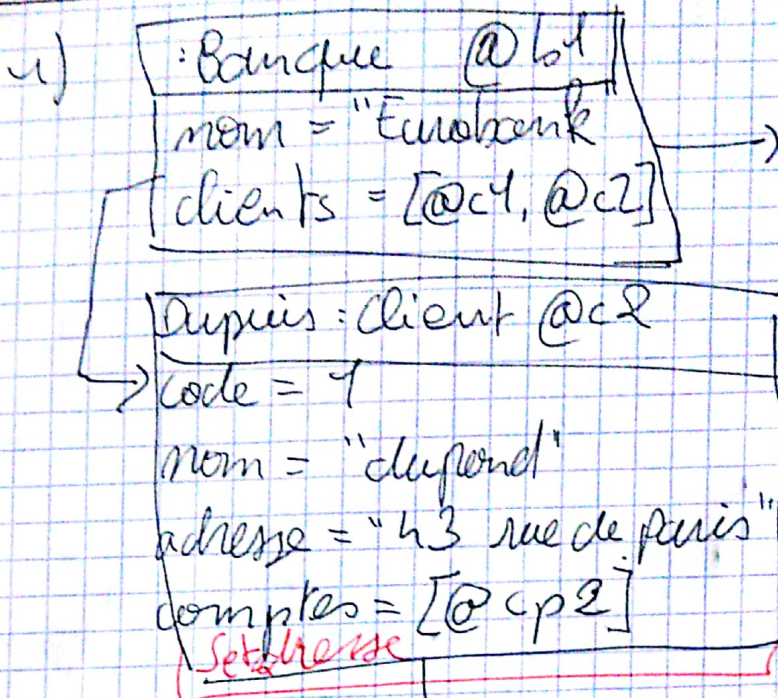 1) :Banque @b1
nom = "Eurobank"
clients = [@c1, @c2]
Dupuis : Client @c2
code = 1
nom = "dupond"
adresse = "43 rue de paris"
comptes = [@cp2]
Setadresse